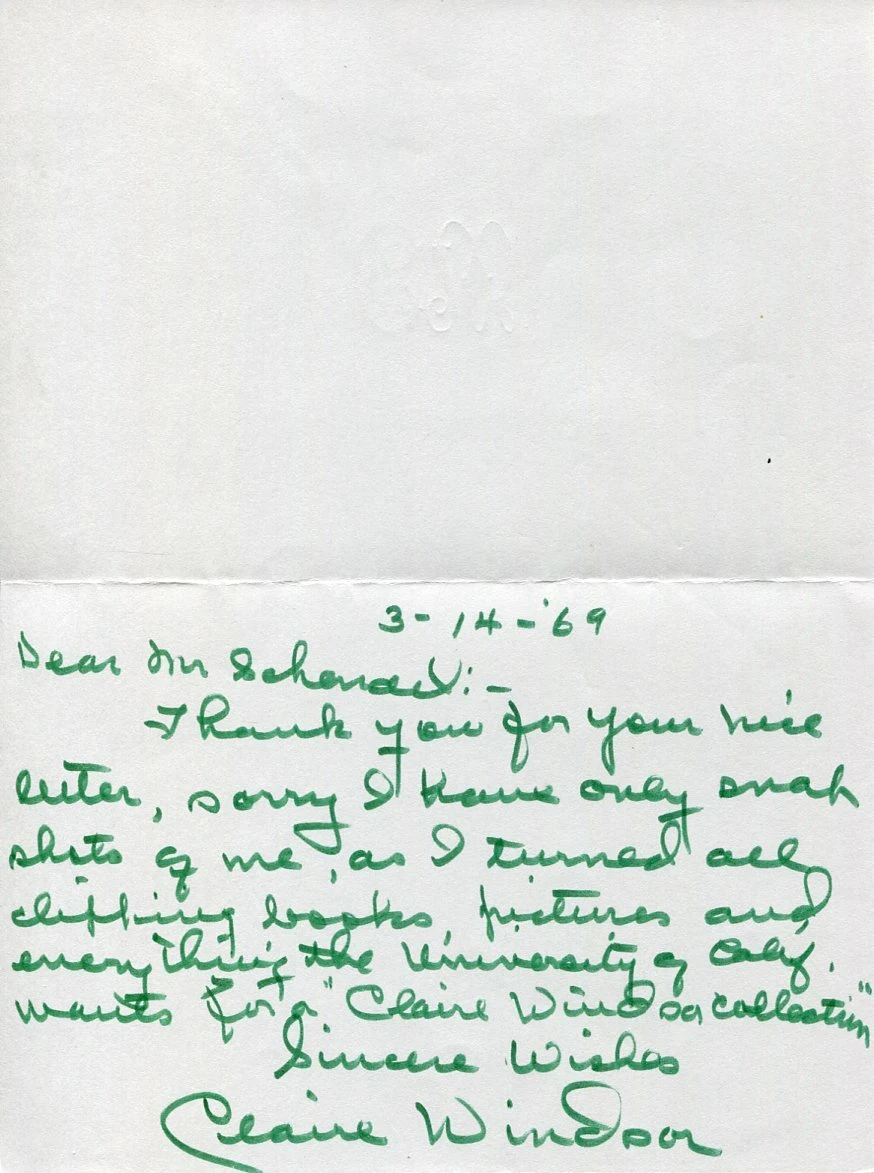 3-14-'69
Dear Mr :-
Thank you for your nice
letter, sorry I have only snap
shots of me, as I turned all
clipping books, pictures and
everything the University of Calif.
wants for a "Claire Windsor collection"
Sincere Wishes
Claire Windsor